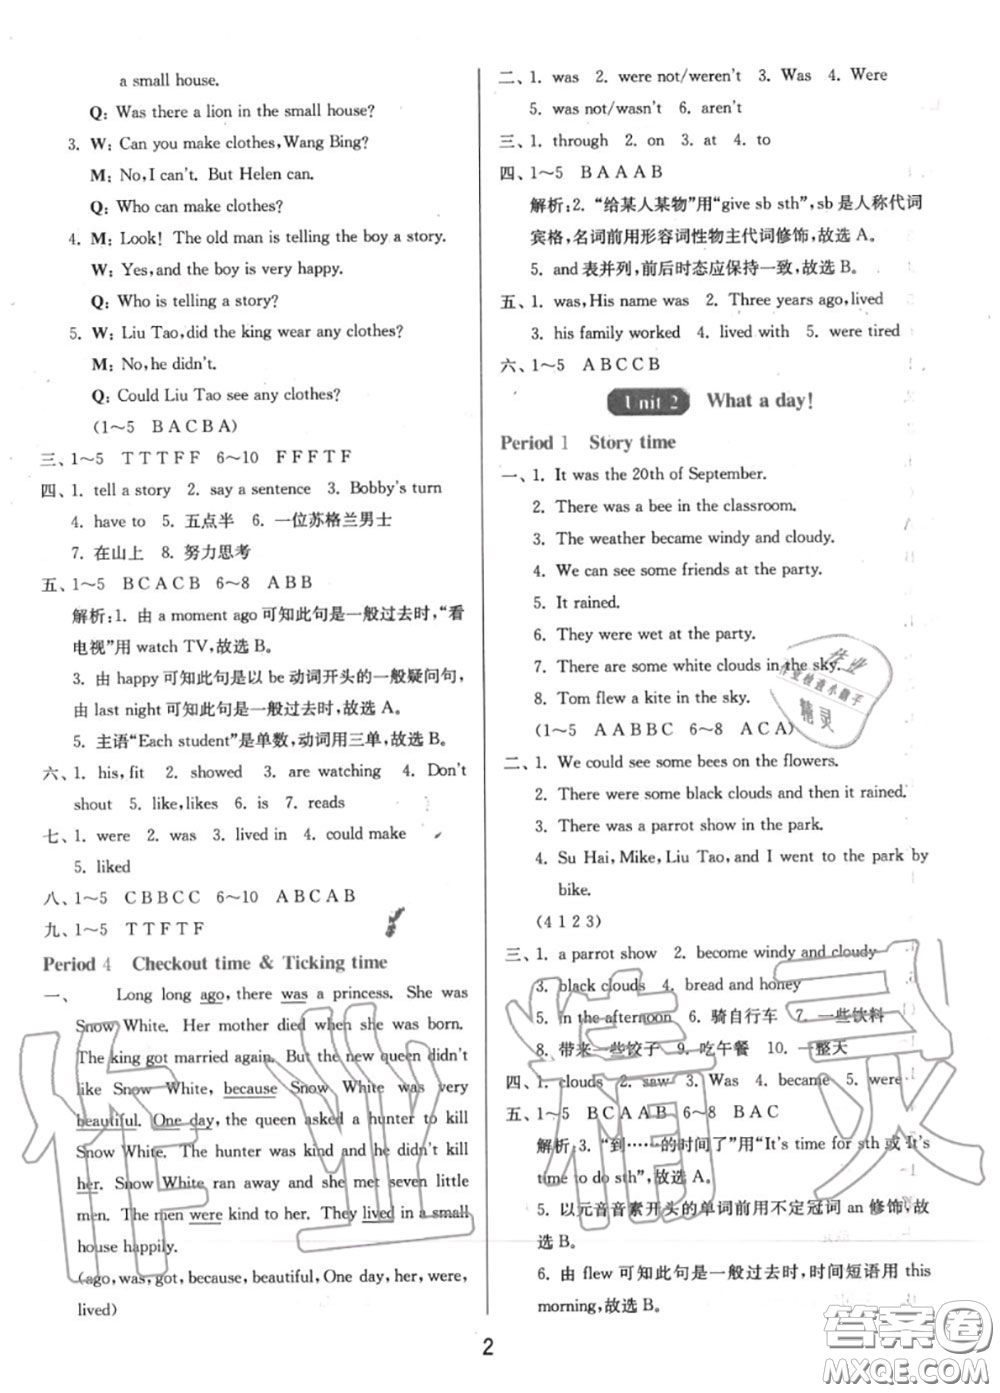 a small house.
Q: Was there a lion in the small house?
3. W: Can you make clothes, Wang Bing?
M: No, I can't. But Helen can.
Q: Who can make clothes?
4. M: Look! The old man is telling the boy a story.
W: Yes, and the boy is very happy.
Q: Who is telling a story?
5. W: Liu Tao, did the king wear any clothes?
M: No, he didn't.
Q: Could Liu Tao see any clothes?
(1～5 B A C B A)
三、1～5 T T T F F 6～10 F F F T F
四、1. tell a story 2. say a sentence 3. Bobby's turn
4. have to 5. 五点半 6. 一位苏格兰男士
7. 在山上 8. 努力思考
五、1～5 B C A C B 6～8 A B B
解析:1. 由 a moment ago 可知此句是一般过去时,“看
电视”用 watch TV,故选 B。
3. 由 happy 可知此句是以 be 动词开头的一般疑问句,
由 last night 可知此句是一般过去时,故选 A。
5. 主语“Each student”是单数,动词用三单,故选 B。
六、1. his, fit 2. showed 3. are watching 4. Don't
shout 5. like, likes 6. is 7. reads
七、1. were 2. was 3. lived in 4. could make
5. liked
八、1～5 C B B C C 6～10 A B C A B
九、1～5 T T F T F
Period 4 Checkout time & Ticking time
一、 Long long ago, there was a princess. She was
Snow White. Her mother died when she was born.
The king got married again. But the new queen didn't
like Snow White, because Snow White was very
beautiful. One day, the queen asked a hunter to kill
Snow White. The hunter was kind and he didn't kill
her. Snow White ran away and she met seven little
men. The men were kind to her. They lived in a small
house happily.
(ago, was, got, because, beautiful, One day, her, were,
lived)
二、1. was 2. were not/weren't 3. Was 4. Were
5. was not/wasn't 6. aren't
三、1. through 2. on 3. at 4. to
四、1～5 B A A A B
解析:2. “给某人某物”用“give sb sth”,sb 是人称代词
宾格,名词前用形容词性物主代词修饰,故选 A。
5. and 表并列,前后时态应保持一致,故选 B。
五、1. was, His name was 2. Three years ago, lived
3. his family worked 4. lived with 5. were tired
六、1～5 A B C C B
Unit 2 What a day!
Period 1 Story time
一、1. It was the 20th of September.
2. There was a bee in the classroom.
3. The weather became windy and cloudy.
4. We can see some friends at the party.
5. It rained.
6. They were wet at the party.
7. There are some white clouds in the sky.
8. Tom flew a kite in the sky.
(1～5 A A B B C 6～8 A C A)
二、1. We could see some bees on the flowers.
2. There were some black clouds and then it rained.
3. There was a parrot show in the park.
4. Su Hai, Mike, Liu Tao, and I went to the park by
bike.
(4 1 2 3)
三、1. a parrot show 2. become windy and cloudy
3. black clouds 4. bread and honey
5. in the afternoon 6. 骑自行车 7. 一些饮料
8. 带来一些饺子 9. 吃午餐 10. 一整天
四、1. clouds 2. saw 3. Was 4. became 5. were
五、1～5 B C A A B 6～8 B A C
解析:3. “到……的时间了”用“It's time for sth 或 It's
time to do sth”,故选 A。
5. 以元音音素开头的单词前用不定冠词 an 修饰,故
选 B。
6. 由 flew 可知此句是一般过去时,时间短语用 this
morning,故选 B。
2
作业精灵
作业
作业检查小助手
精灵
答案圈
MXQE.COM